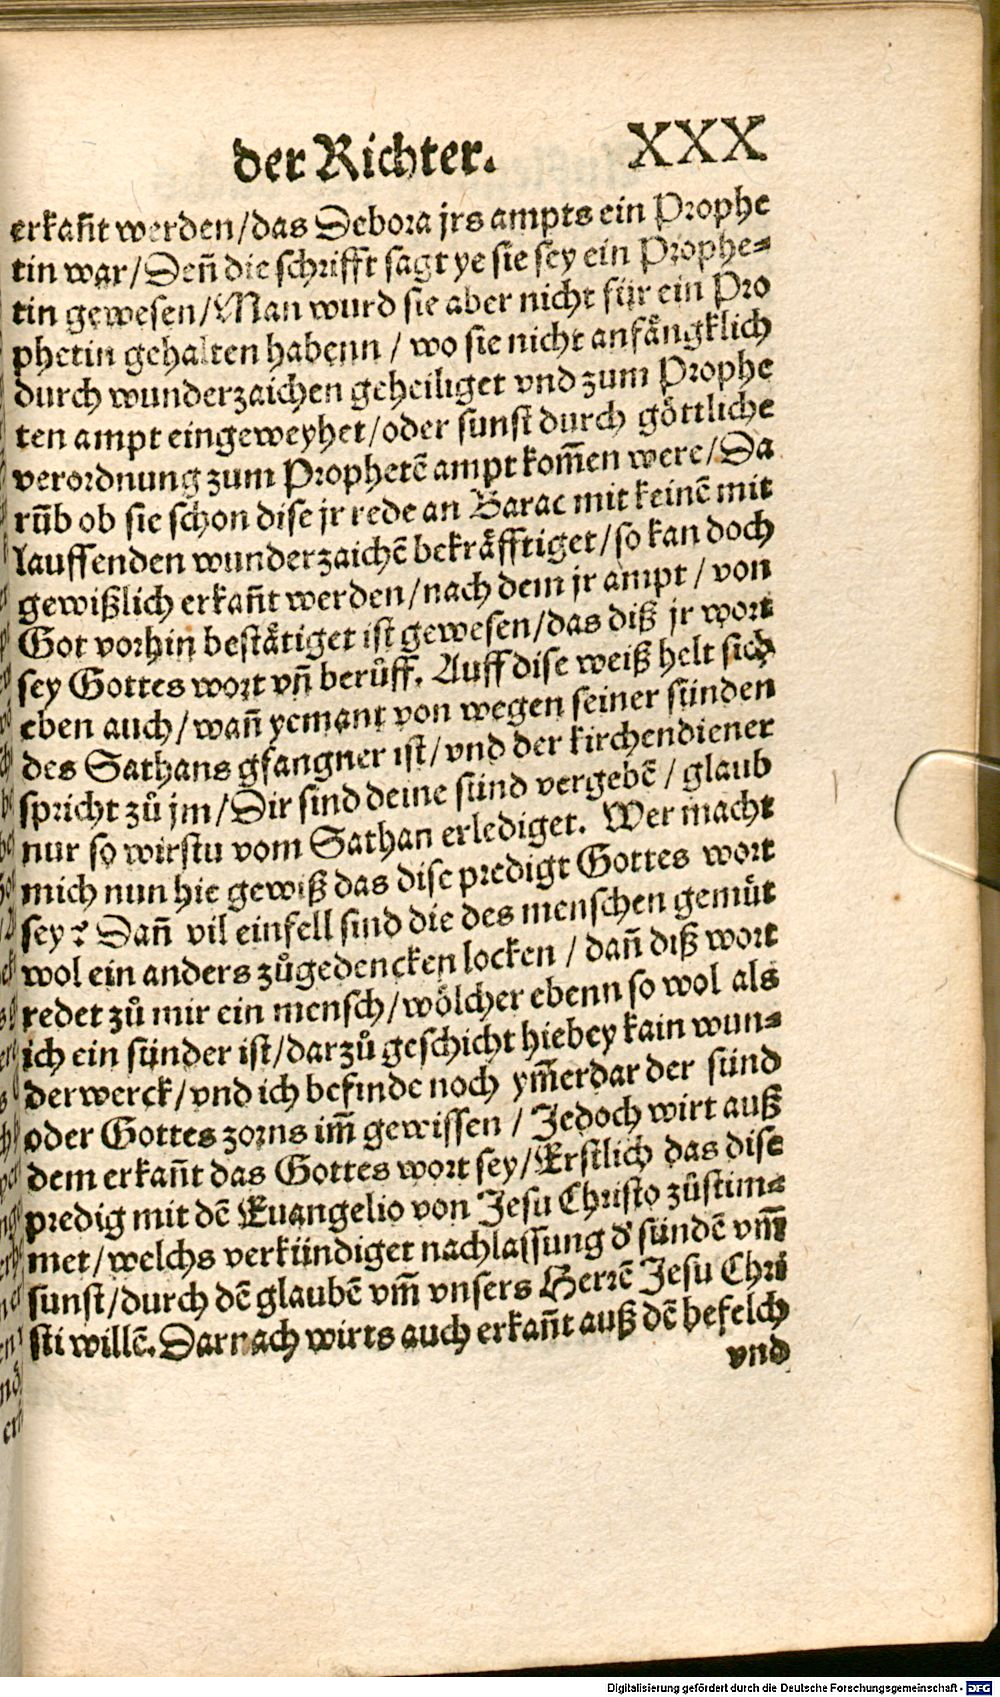 der Richter. XXX
erkañt werden/das Debora jrs ampts ein Prophe
tin war/Deñ die schrifft sagt ye sie sey ein Prophe⸗
tin gewesen/Man wurd sie aber nicht für ein Pro
phetin gehalten habenn / wo sie nicht anfångklich
durch wunderzaichen geheiliget vnd zum Prophe
ten ampt eingeweyhet/oder sunst durch göttliche
verordnung zum Prophetē ampt kom̃en were/Da
rūb ob sie schon dise jr rede an Barac mit keinē mit
lauffenden wunderzaichē bekråfftiget/so kan doch
gewißlich erkañt werden/nach dem jr ampt / von
Got vorhin beståtiget ist gewesen/das diß jr wort
sey Gottes wort vñ berůff. Auff dise weiß helt sich
eben auch/wañ yemant von wegen seiner sünden
des Sathans gfangner ist/vnd der kirchendiener
spricht zů jm/Dir sind deine sünd vergebē / glaub
nur so wirstu vom Sathan erlediget. Wer macht
mich nun hie gewiß das dise predigt Gottes wort
sey? Dañ vil einfell sind die des menschen gemüt
wol ein anders zůgedencken locken / dañ diß wort
redet zů mir ein mensch/wölcher ebenn so wol als
ich ein sünder ist/darzů geschicht hiebey kain wun⸗
derwerck/vnd ich befinde noch ym̃erdar der sünd
oder Gottes zorns im̃ gewissen / Jedoch wirt auß
dem erkañt das Gottes wort sey/Erstlich das dise
predig mit dē Euangelio von Jesu Christo zůstim⸗
met/welchs verkündiget nachlassung d' sündē vm̃
sunst/durch dē glaubē vm̃ vnsers Herrē Jesu Chri
sti willē. Darnach wirts auch erkañt auß dē befelch
vnd
Digitalisierung gefördert durch die Deutsche Forschungsgemeinschaft - DFG